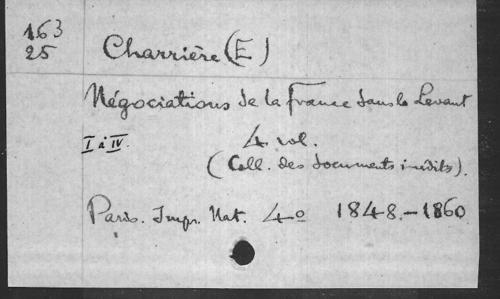 163
25
Charrière (E)
Négociations de la France dans le Levant
I à IV.
4 vol.
(Coll. des documents inédits).
Paris. Impr. Nat. 4o 1848.-1860